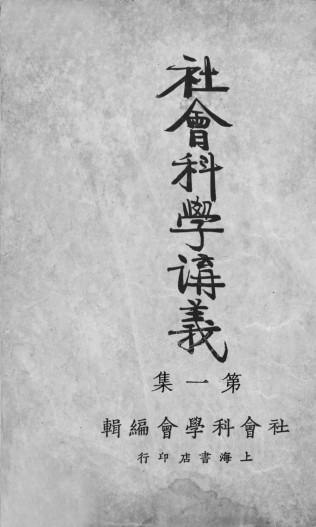 社會科學講義
第一集
社會科學會編輯
上海書店印行